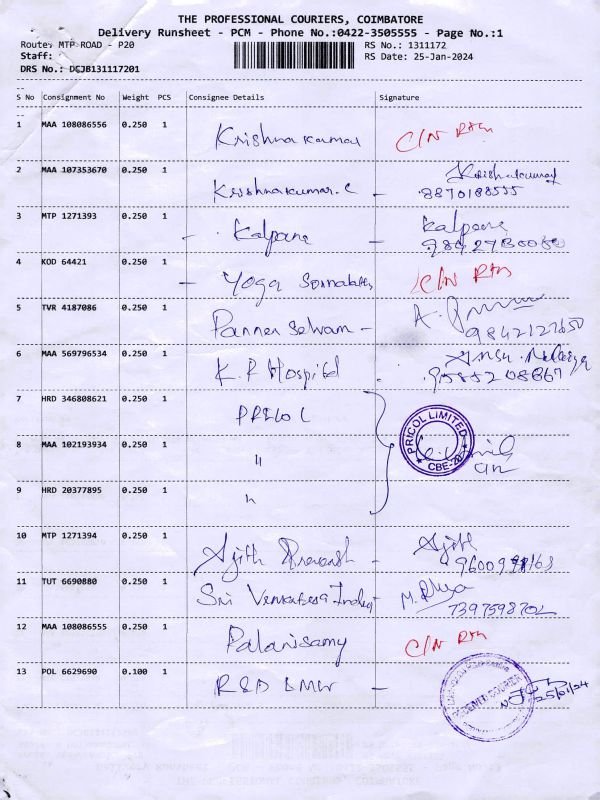 THE PROFESSIONAL COURIERS, COIMBATORE
Delivery Runsheet - PCM - Phone No.:0422-3505555 - Page No.:1
Route: MTP ROAD - P20 RS No.: 1311172
Staff: RS Date: 25-Jan-2024
DRS No.: DCJB131117201
S No Consignment No Weight PCS Consignee Details Signature
1 MAA 108086556 0.250 1 Krishna Kumar C/N Rtn
2 MAA 107353670 0.250 1 Krishnakumar.C - Krishnakumar
8870188555
3 MTP 1271393 0.250 1 - Kalpana - Kalpana
4 KOD 64421 0.250 1 - Yoga C/N Rtn
5 TVR 4187086 0.250 1 Panner Selvam - A.
9842127650
6 MAA 569796534 0.250 1 K.P Hospital
7 HRD 346808621 0.250 1 PRICOL PRICOL LIMITED
8 MAA 102193934 0.250 1 " CBE-20
9 HRD 20377895 0.250 1 "
10 MTP 1271394 0.250 1 Ajith - Ajith
11 TUT 6690880 0.250 1 Sri Venkatesa M. Priya
7397598702
12 MAA 108086555 0.250 1 Palanisamy C/N Rtn
13 POL 6629690 0.100 1 R&D BMW -
25/01/24